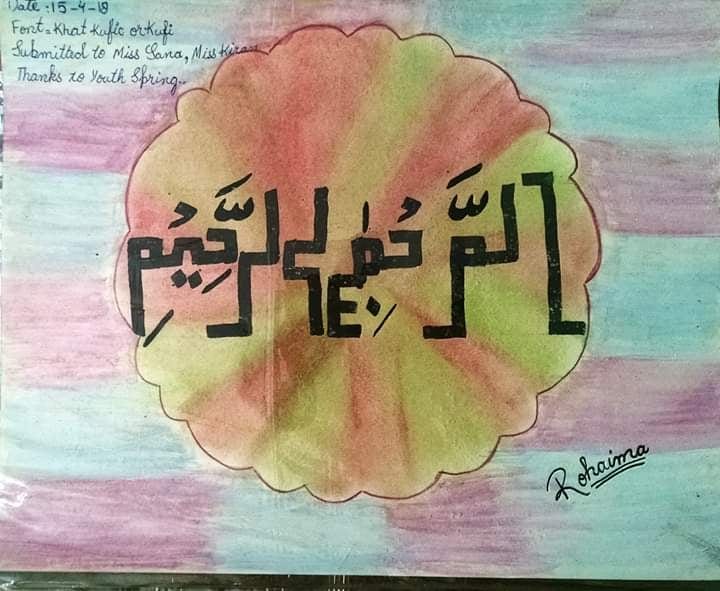 Date :15-4-19
Font = Khat Kufic or Kufi
Submitted to Miss Sana, Miss Kiran
Thanks to Youth Spring..
الرَّحْمٰنِ الرَّحِيْمِ
Rohaima